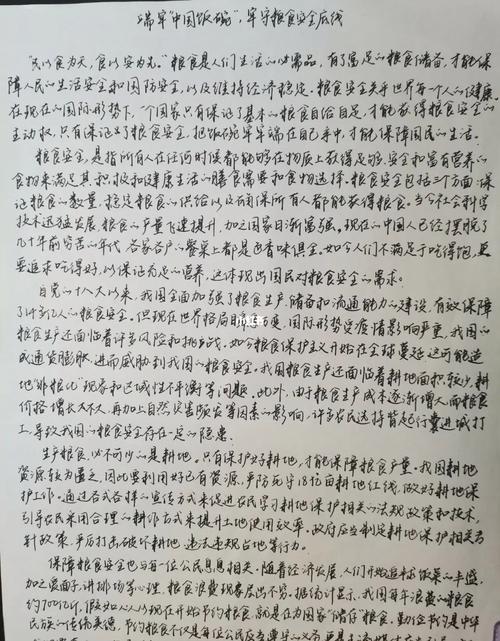 端牢“中国饭碗”，牢守粮食安全底线
“民以食为天，食以安为先。”粮食是人们生活的必需品，有了富足的粮食储备，才能保
障人民的生活安全和国防安全，以及维持经济稳定。粮食安全关乎世界每一个人的健康。
在现在的国际形势下，一个国家只有保证了基本的粮食自给自足，才能获得粮食安全的
主动权，只有保证了粮食安全，把饭碗牢牢端在自己手中，才能保障国民的生活。
粮食安全，是指所有人在任何时候都能够在物质上获得足够、安全和富有营养的
食物来满足其积极和健康生活的膳食需要和食物选择。粮食安全包括三个方面：保
证粮食的数量，稳定粮食的供给以及确保所有人都能获得粮食。当今社会科学
技术迅猛发展，粮食的产量飞速提升，加之国家日渐富强。现在的中国人已经摆脱了
几十年前穷苦的年代，各家各户的餐桌上都是色香味俱全。如今人们不满足于吃得饱，更
要追求吃得好，以保证充足的营养，这体现出国民对粮食安全的需求。
自党的十八大以来，我国全面加强了粮食生产、储备和流通能力的建设，有效保障
了许多亿人的粮食安全。但现在世界格局日益变，国际形势受疫情影响严重，我国的
粮食生产还面临着许多风险和挑战，如今粮食保护主义开始在全球蔓延，这可能造
成通货膨胀，进而威胁到我国的粮食安全。我国粮食生产还面临着耕地面积较少，耕
地“非粮化”现象和区域性不平衡等问题。此外，由于粮食生产成本逐渐增大，而粮食
价格增长不大，再加上自然灾害频发等因素的影响，许多农民选择背起行囊进城打
工，导致我国的粮食安全存在一定的隐患。
生产粮食，必不可少的是耕地。只有保护好耕地，才能保障粮食产量。我国耕地
资源较为匮乏，因此要利用好已有资源，严防死守18亿亩耕地红线，做好耕地保
护工作。通过各式各样的宣传方式来促进农民学习耕地保护相关的法规政策和技术，
引导农民采用合理的耕作方式来提升土地使用效率。政府应当制定耕地保护相关方
针政策，严厉打击破坏耕地、违法违规占地等行为。
保障粮食安全也与每一位公民息息相关。随着经济发展，人们开始追求饭菜的丰盛，
加之爱面子、讲排场等心理，粮食浪费现象层出不穷。据统计显示，我国每年浪费的粮食
约700亿斤，假如人人从现在开始节约粮食，就是在为国家“储存”粮食。勤俭节约是中华
民族的传统美德，节约粮食不仅是每位公民应当尊